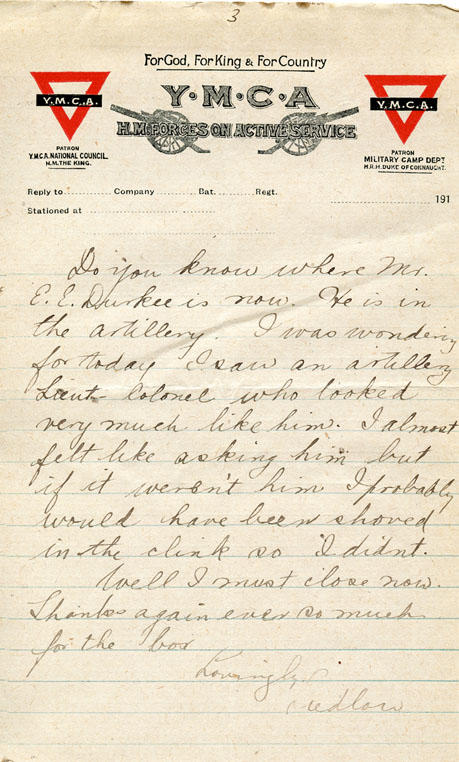 3
For God, For King & For Country
Y.M.C.A.
Y·M·C·A
Y.M.C.A.
H.M. FORCES ON ACTIVE SERVICE
PATRON
Y.M.C.A. NATIONAL COUNCIL.
H.M. THE KING.
PATRON
MILITARY CAMP DEPT
H.R.H. DUKE OF CONNAUGHT.
Reply to Company Bat. Regt.
Stationed at
191
Do you know where Mr.
E. E. Durkee is now. He is in
the artillery. I was wondering
for today I saw an artillery
Lieut-Colonel who looked
very much like him. I almost
felt like asking him but
if it weren't him I probably
would have been shoved
in the clink so I didnt.
Well I must close now.
Thanks again ever so much
for the box
Lovingly,